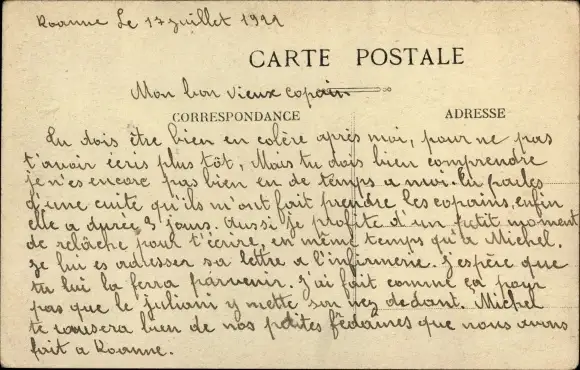 Roanne Le 17 Juillet 1921
CARTE POSTALE
Mon bon vieux copain
CORRESPONDANCE
ADRESSE
Tu dois être bien en colère après moi, pour ne pas
t'avoir écris plus tôt, Mais tu dois bien comprendre
je n'es encore pas bien eu de temps a moi. Tu parles
d'une cuite qu'ils m'ont fait prendre les copains, enfin
elle a durée 3 jours. Aussi je profite d'un petit moment
de relâche pour t'écrire, en même temps qu'à Michel.
Je lui es adresser sa lettre a l'infirmerie. J'espère que
tu lui la ferra parvenir. J'ai fait comme ça pour
pas que le juliani y mette son nez dedant. Michel
te causera bien de nos petites fêdaines que nous avons
fait a Roanne.